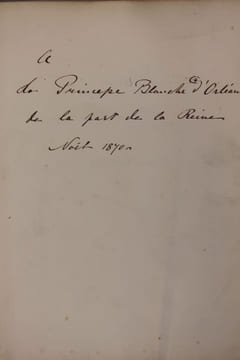 A
la Princesse Blanche d'Orléans
de la part de la Reine
Noël 1870